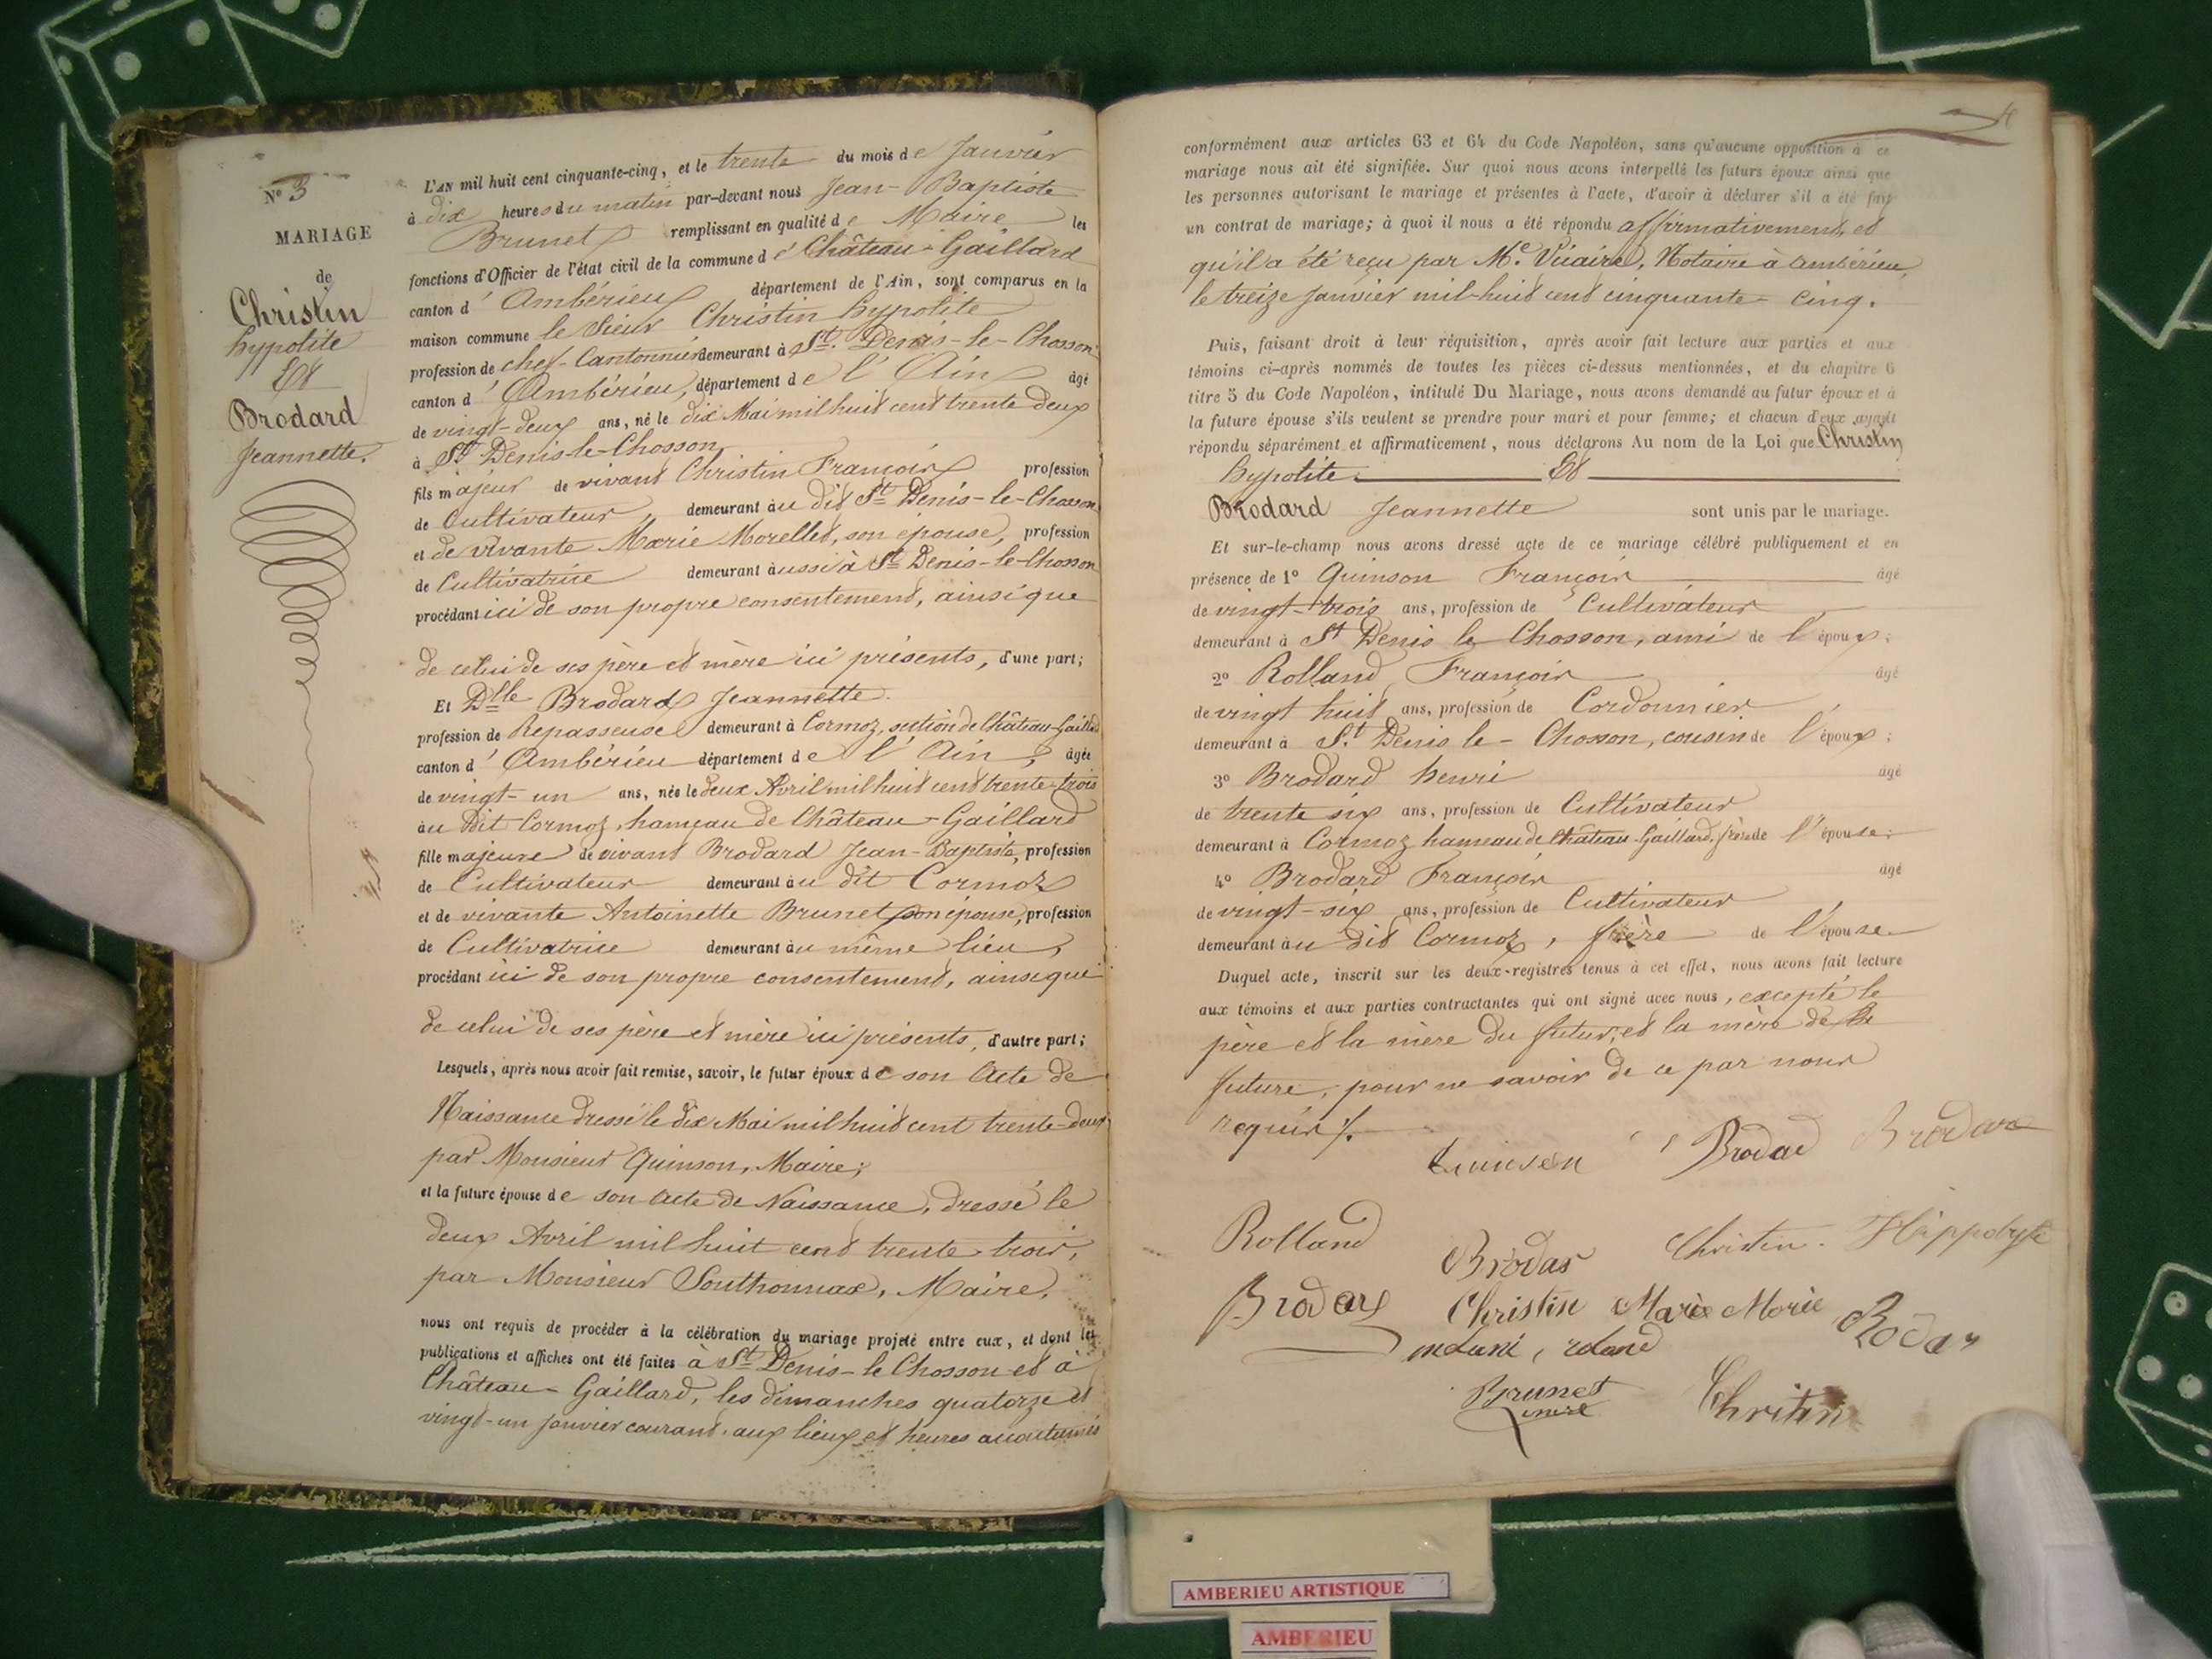 N° 3
MARIAGE
de
Christin
hypolite
Et
Brodard
Jeannette.
L'AN mil huit cent cinquante-cinq, et le trente du mois de Janvier
à dix heures du matin par-devant nous Jean-Baptiste
Brunet remplissant en qualité de Maire les
fonctions d'Officier de l'état civil de la commune de Château-Gaillard
canton d'Ambérieu département de l'Ain, sont comparus en la
maison commune le Sieur Christin hypolite
profession de chef-Cantonnier demeurant à St. Denis-le-Chosson
canton d'Ambérieu, département de l'Ain âgé
de vingt-deux ans, né le dix Mai mil huit cent trente deux
à St Denis-le-Chosson
fils majeur de vivant Christin François profession
de Cultivateur, demeurant au dit St Denis-le-Chosson
et de vivante Marie Morellet, son épouse, profession
de Cultivatrice demeurant aussi à St Denis-le-Chosson
procédant ici de son propre consentement, ainsi que
de celui de ses père et mère ici présents, d'une part;
Et Dlle Brodard Jeannette
profession de Repasseuse demeurant à Cormoz, section de Château-Gaillard
canton d'Ambérieu département de l'Ain, âgée
de vingt-un ans, née le deux Avril mil huit cent trente-trois
au Dit Cormoz, hameau de Château-Gaillard
fille majeure de vivant Brodard Jean-Baptiste, profession
de Cultivateur demeurant au dit Cormoz
et de vivante Antoinette Brunet son épouse, profession
de Cultivatrice demeurant au même lieu,
procédant ici de son propre consentement, ainsi que
de celui de ses père et mère ici présents, d'autre part;
Lesquels, après nous avoir fait remise, savoir, le futur époux de son Acte de
Naissance dressé le dix Mai mil huit cent trente-deux
par Monsieur Quinson, Maire;
et la future épouse de son Acte de Naissance, dressé le
deux Avril mil huit cent trente trois,
par Monsieur Southonnax, Maire,
nous ont requis de procéder à la célébration du mariage projeté entre eux, et dont les
publications et affiches ont été faites à St Denis-le Chosson et à
Château-Gaillard, les dimanches quatorze et
vingt-un janvier courant, aux lieux et heures accoutumés
conformément aux articles 63 et 64 du Code Napoléon, sans qu'aucune opposition à ce
mariage nous ait été signifiée. Sur quoi nous avons interpellé les futurs époux ainsi que
les personnes autorisant le mariage et présentes à l'acte, d'avoir à déclarer s'il a été fait
un contrat de mariage; à quoi il nous a été répondu affirmativement, et
qu'il a été reçu par Me. Vicaire, Notaire à Ambérieu,
le treize Janvier mil-huit cent cinquante-cinq.
Puis, faisant droit à leur réquisition, après avoir fait lecture aux parties et aux
témoins ci-après nommés de toutes les pièces ci-dessus mentionnées, et du chapitre 6
titre 5 du Code Napoléon, intitulé Du Mariage, nous avons demandé au futur époux et à
la future épouse s'ils veulent se prendre pour mari et pour femme; et chacun d'eux ayant
répondu séparément et affirmativement, nous déclarons Au nom de la Loi que Christin
hypolite Et
Brodard Jeannette sont unis par le mariage.
Et sur-le-champ nous avons dressé acte de ce mariage célébré publiquement et en
présence de 1° Quinson François âgé
de vingt-trois ans, profession de Cultivateur
demeurant à St Denis le Chosson, ami de l'époux;
2° Rolland François âgé
de vingt huit ans, profession de Cordonnier,
demeurant à St Denis le-Chosson, cousin de l'époux;
3° Brodard henri âgé
de trente six ans, profession de Cultivateur
demeurant à Cormoz hameau de Château-Gaillard, frère de l'épouse;
4° Brodard François âgé
de vingt-six ans, profession de Cultivateur
demeurant au dit Cormoz, frère de l'épouse
Duquel acte, inscrit sur les deux registres tenus à cet effet, nous avons fait lecture
aux témoins et aux parties contractantes qui ont signé avec nous, excepté le
père et la mère du futur, et la mère de la
future, pour ne savoir de ce par nous
requis %.
Quinson Brodad Brodar
Rolland Brodar Christin Hippolyte
Brodar Christin Marie Rodar
roland
Brunet
maire Chritin
AMBERIEU ARTISTIQUE
AMBERIEU